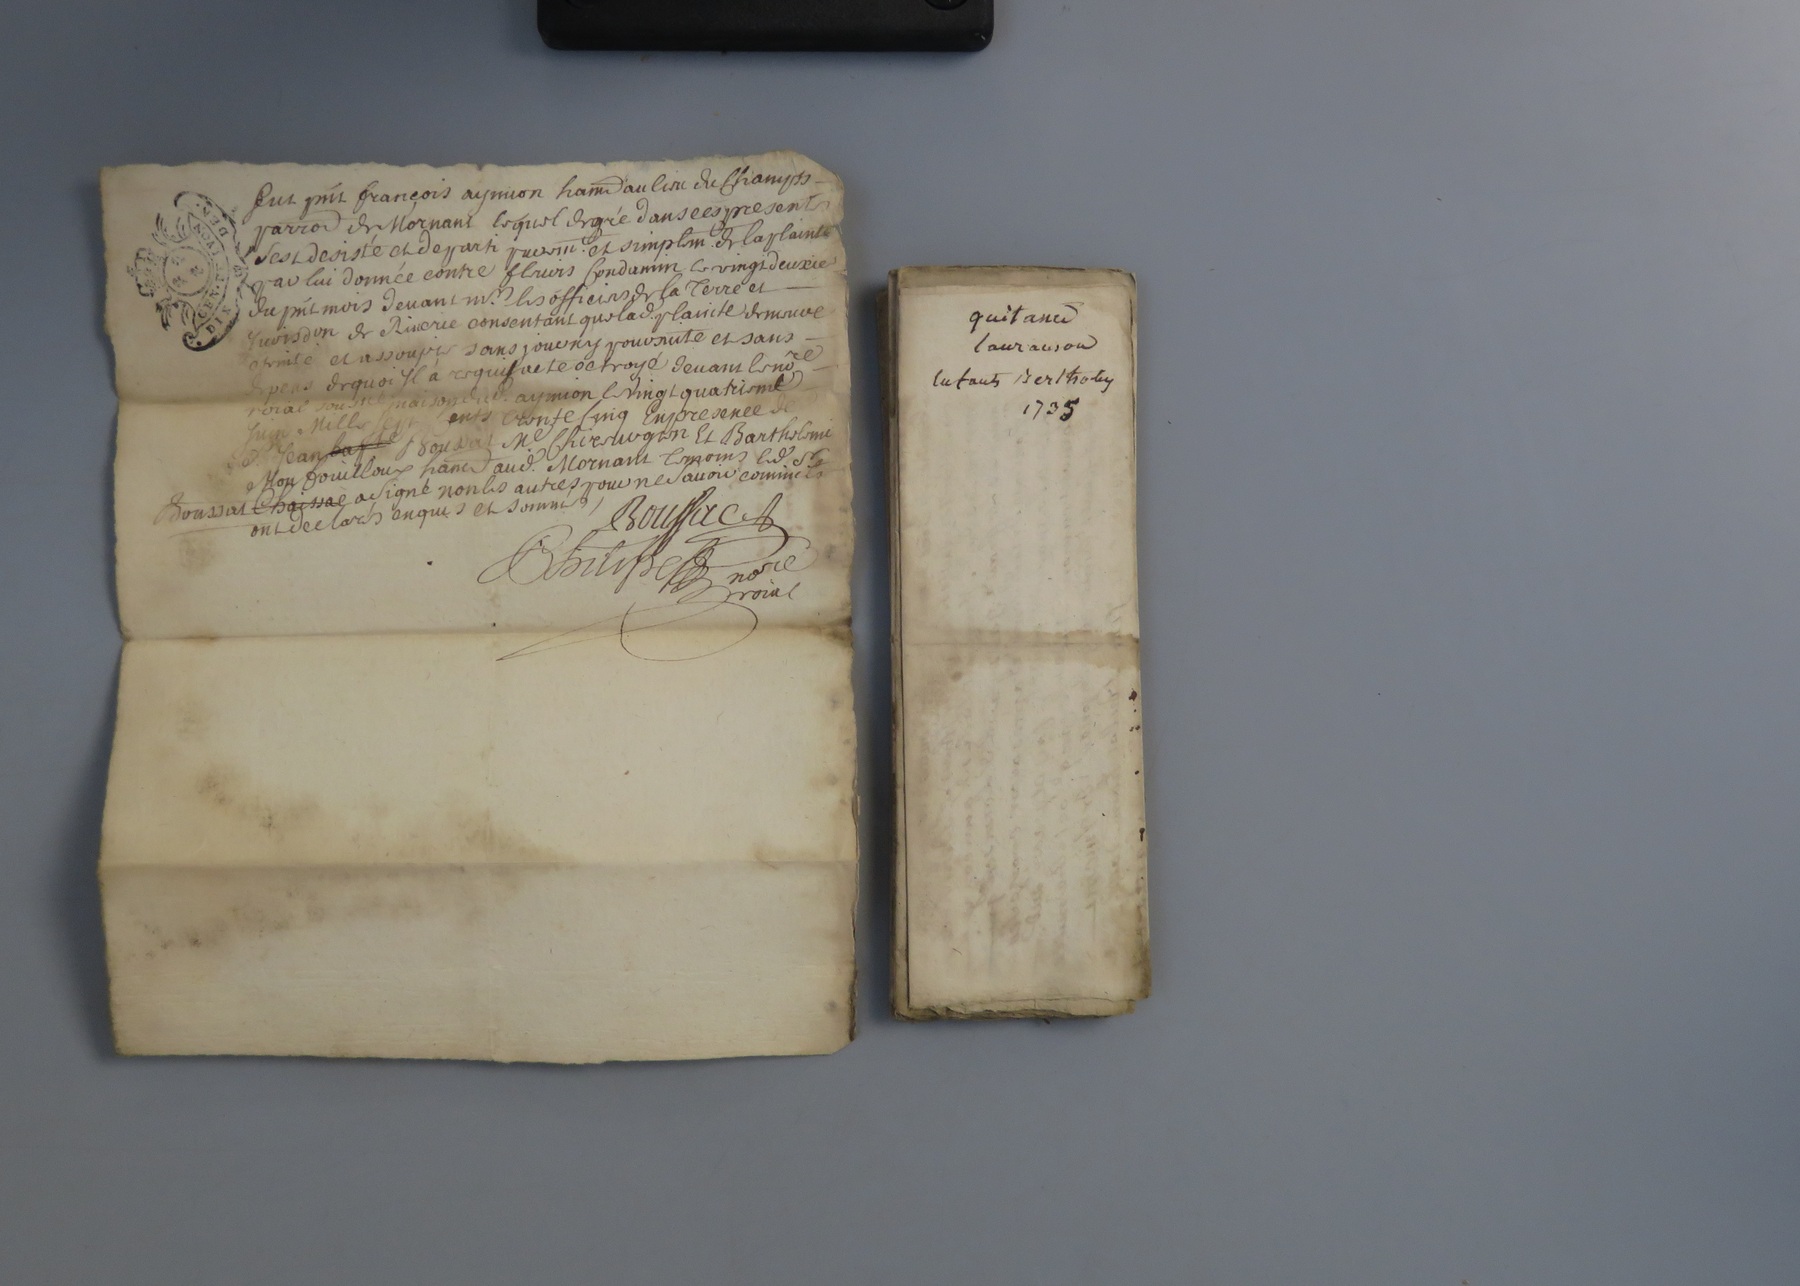 fut pnt françois aymion habnt au lieu du Champs
parroe de Mornant lequel de gré dans ces presentes
s'est desisté et departi purem.t et simplem.t de la plainte
par lui donnée contre fleuris Condamin le vingt deuxie
du pnt mois devant mrs les officiers de la Terre et
Jurisdon de Riverie consentant que lad. plainte demeure
eteinte et assoupie sans jour ny poursuite et sans
depens de quoi Il a requis acte octroyé devant le nore
roial sous.né maison dud. aymion le vingt quatrieme
Juin Mille sept cents trente Cinq En presence de
Sr. Jean Boussat Me Chirurgien Et Barthelemi
Mon Souilloux habnt aud. Mornant temoins led. Sr
Boussat Chaissac a signé non les autres pour ne savoir comme ils
ont declarés enquis et sommés
Boussac
nore
roial
DEN
GEN
DI
quitance
lauranson
Enfants Bertholey
1735